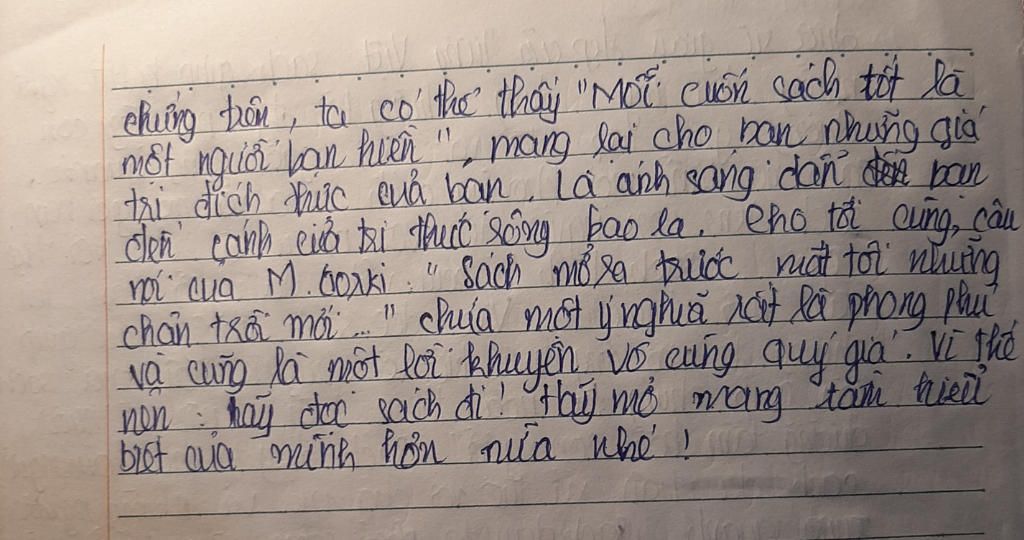 chứng trên, ta có thể thấy "Mỗi cuốn sách tốt là
một người bạn hiền", mang lại cho bạn những giá
trị đích thực của bạn. Là ánh sáng dẫn bạn
đến cánh của tri thức sống bao la. Cho tới cùng, câu
nói của M. Gorki: "Sách mở ra trước mắt tôi những
chân trời mới..." chứa một ý nghĩa rất là phong phú
và cũng là một lời khuyên vô cùng quý giá. Vì thế
nên: hãy đọc sách đi! Hãy mở mang tầm hiểu
biết của mình hơn nữa nhé!